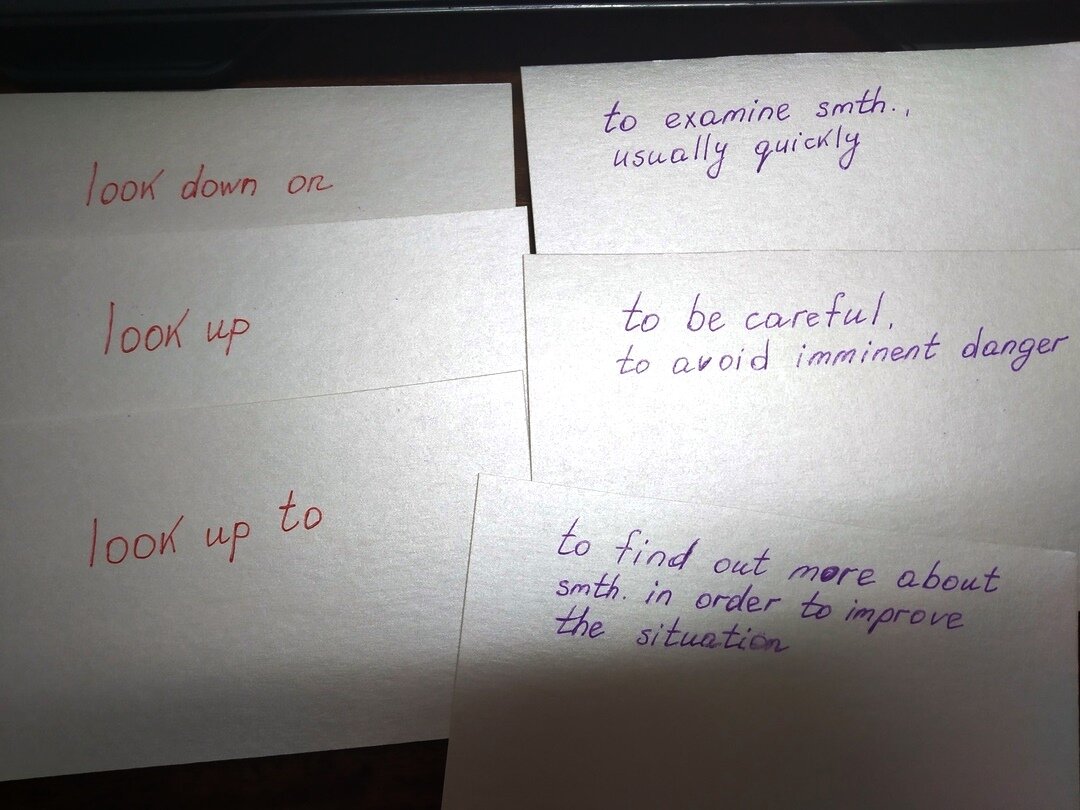 look down on
look up
look up to
to examine smth.,
usually quickly
to be careful,
to avoid imminent danger
to find out more about
smth. in order to improve
the situation